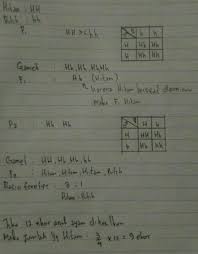 Hitam : HH
Putih : hh
P₁ HH >< hh
h h
H Hh Hh
H Hh Hh
Gamet : Hh, Hh, Hh, Hh
F₁ : Hh (Hitam)
karena Hitam bersifat dominan
maka F₁ Hitam
P₂ Hh Hh
H h
H HH Hh
h Hh hh
Gamet : HH, Hh, Hh, hh
F₂ : Hitam, Hitam, Hitam, Putih
Rasio fenotipe : 3 : 1
Hitam : Putih
Jika 12 ekor anak ayam dihasilkan
Maka jumlah yg Hitam : 3/4 x 12 = 9 ekor